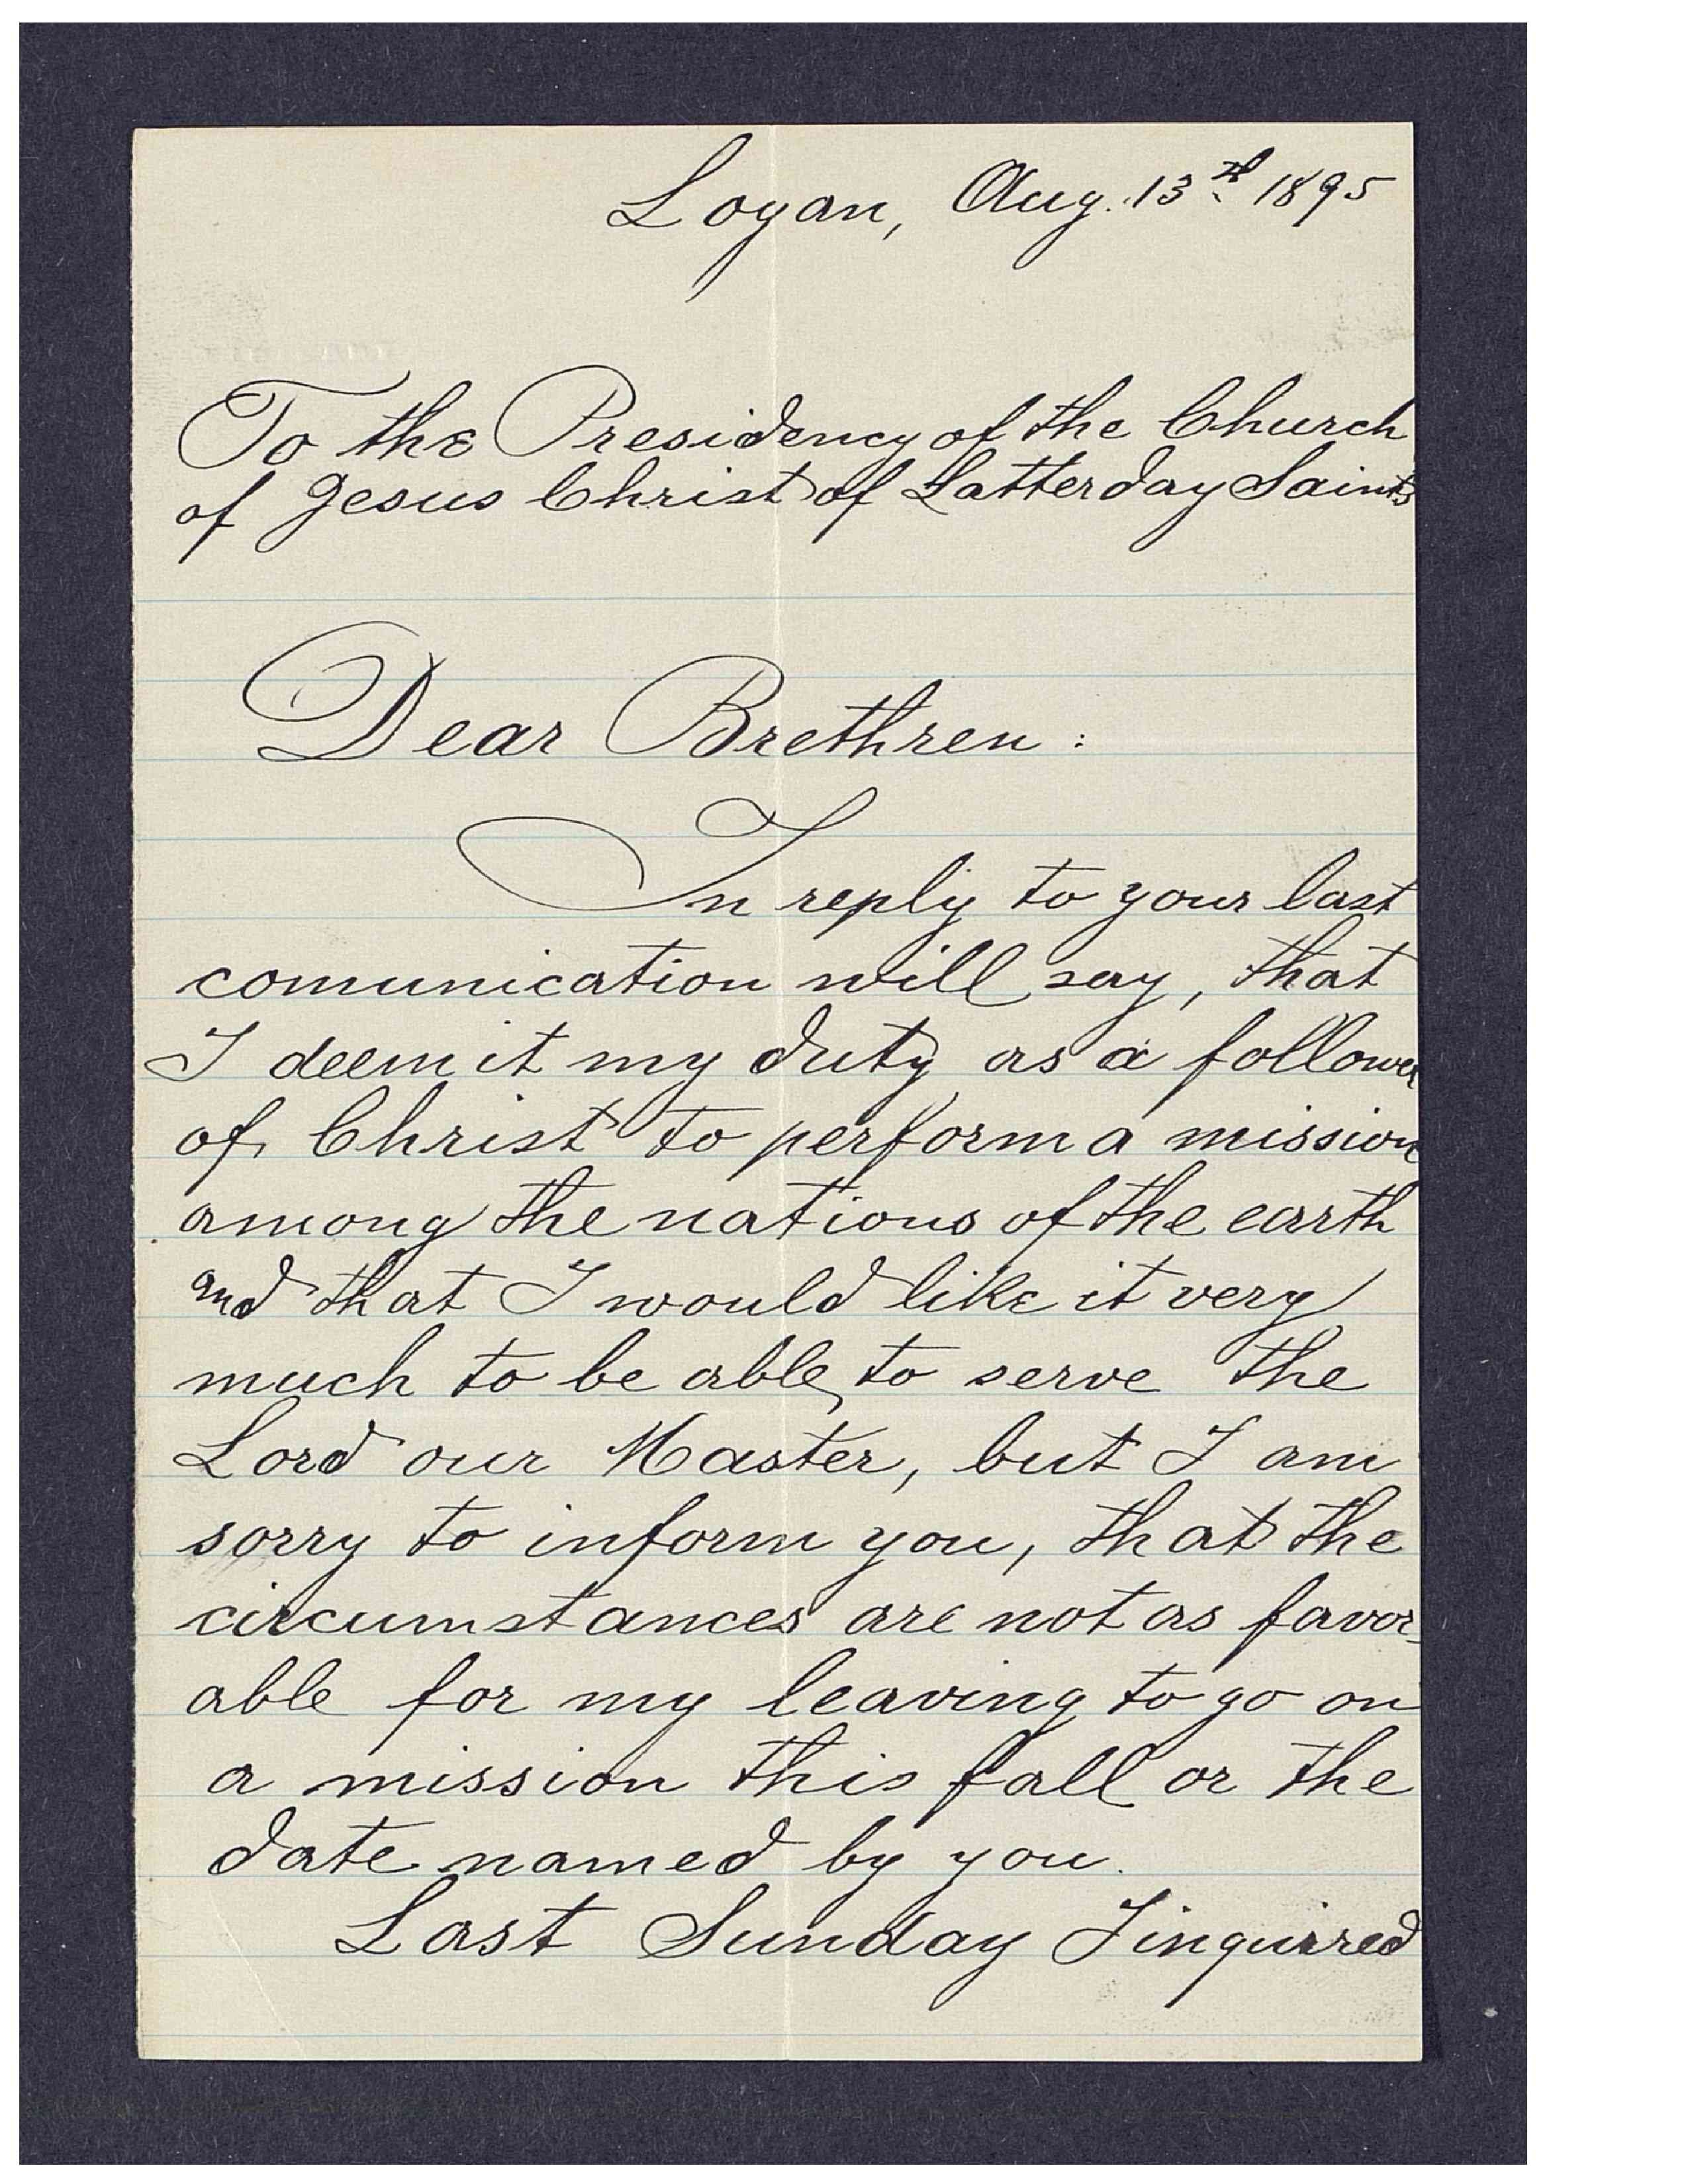 Logan, Aug. 13th 1895
To the Presidency of the Church
of Jesus Christ of Latterday Saints
Dear Brethren:
In reply to your last
comunication will say, that
I deem it my duty as a follower
of Christ to perform a mission
among the nations of the earth
and that I would like it very
much to be able to serve the
Lord our Master, but I am
sorry to inform you, that the
circumstances are not as favor-
able for my leaving to go on
a mission this fall or the
date named by you.
Last Sunday I inquired